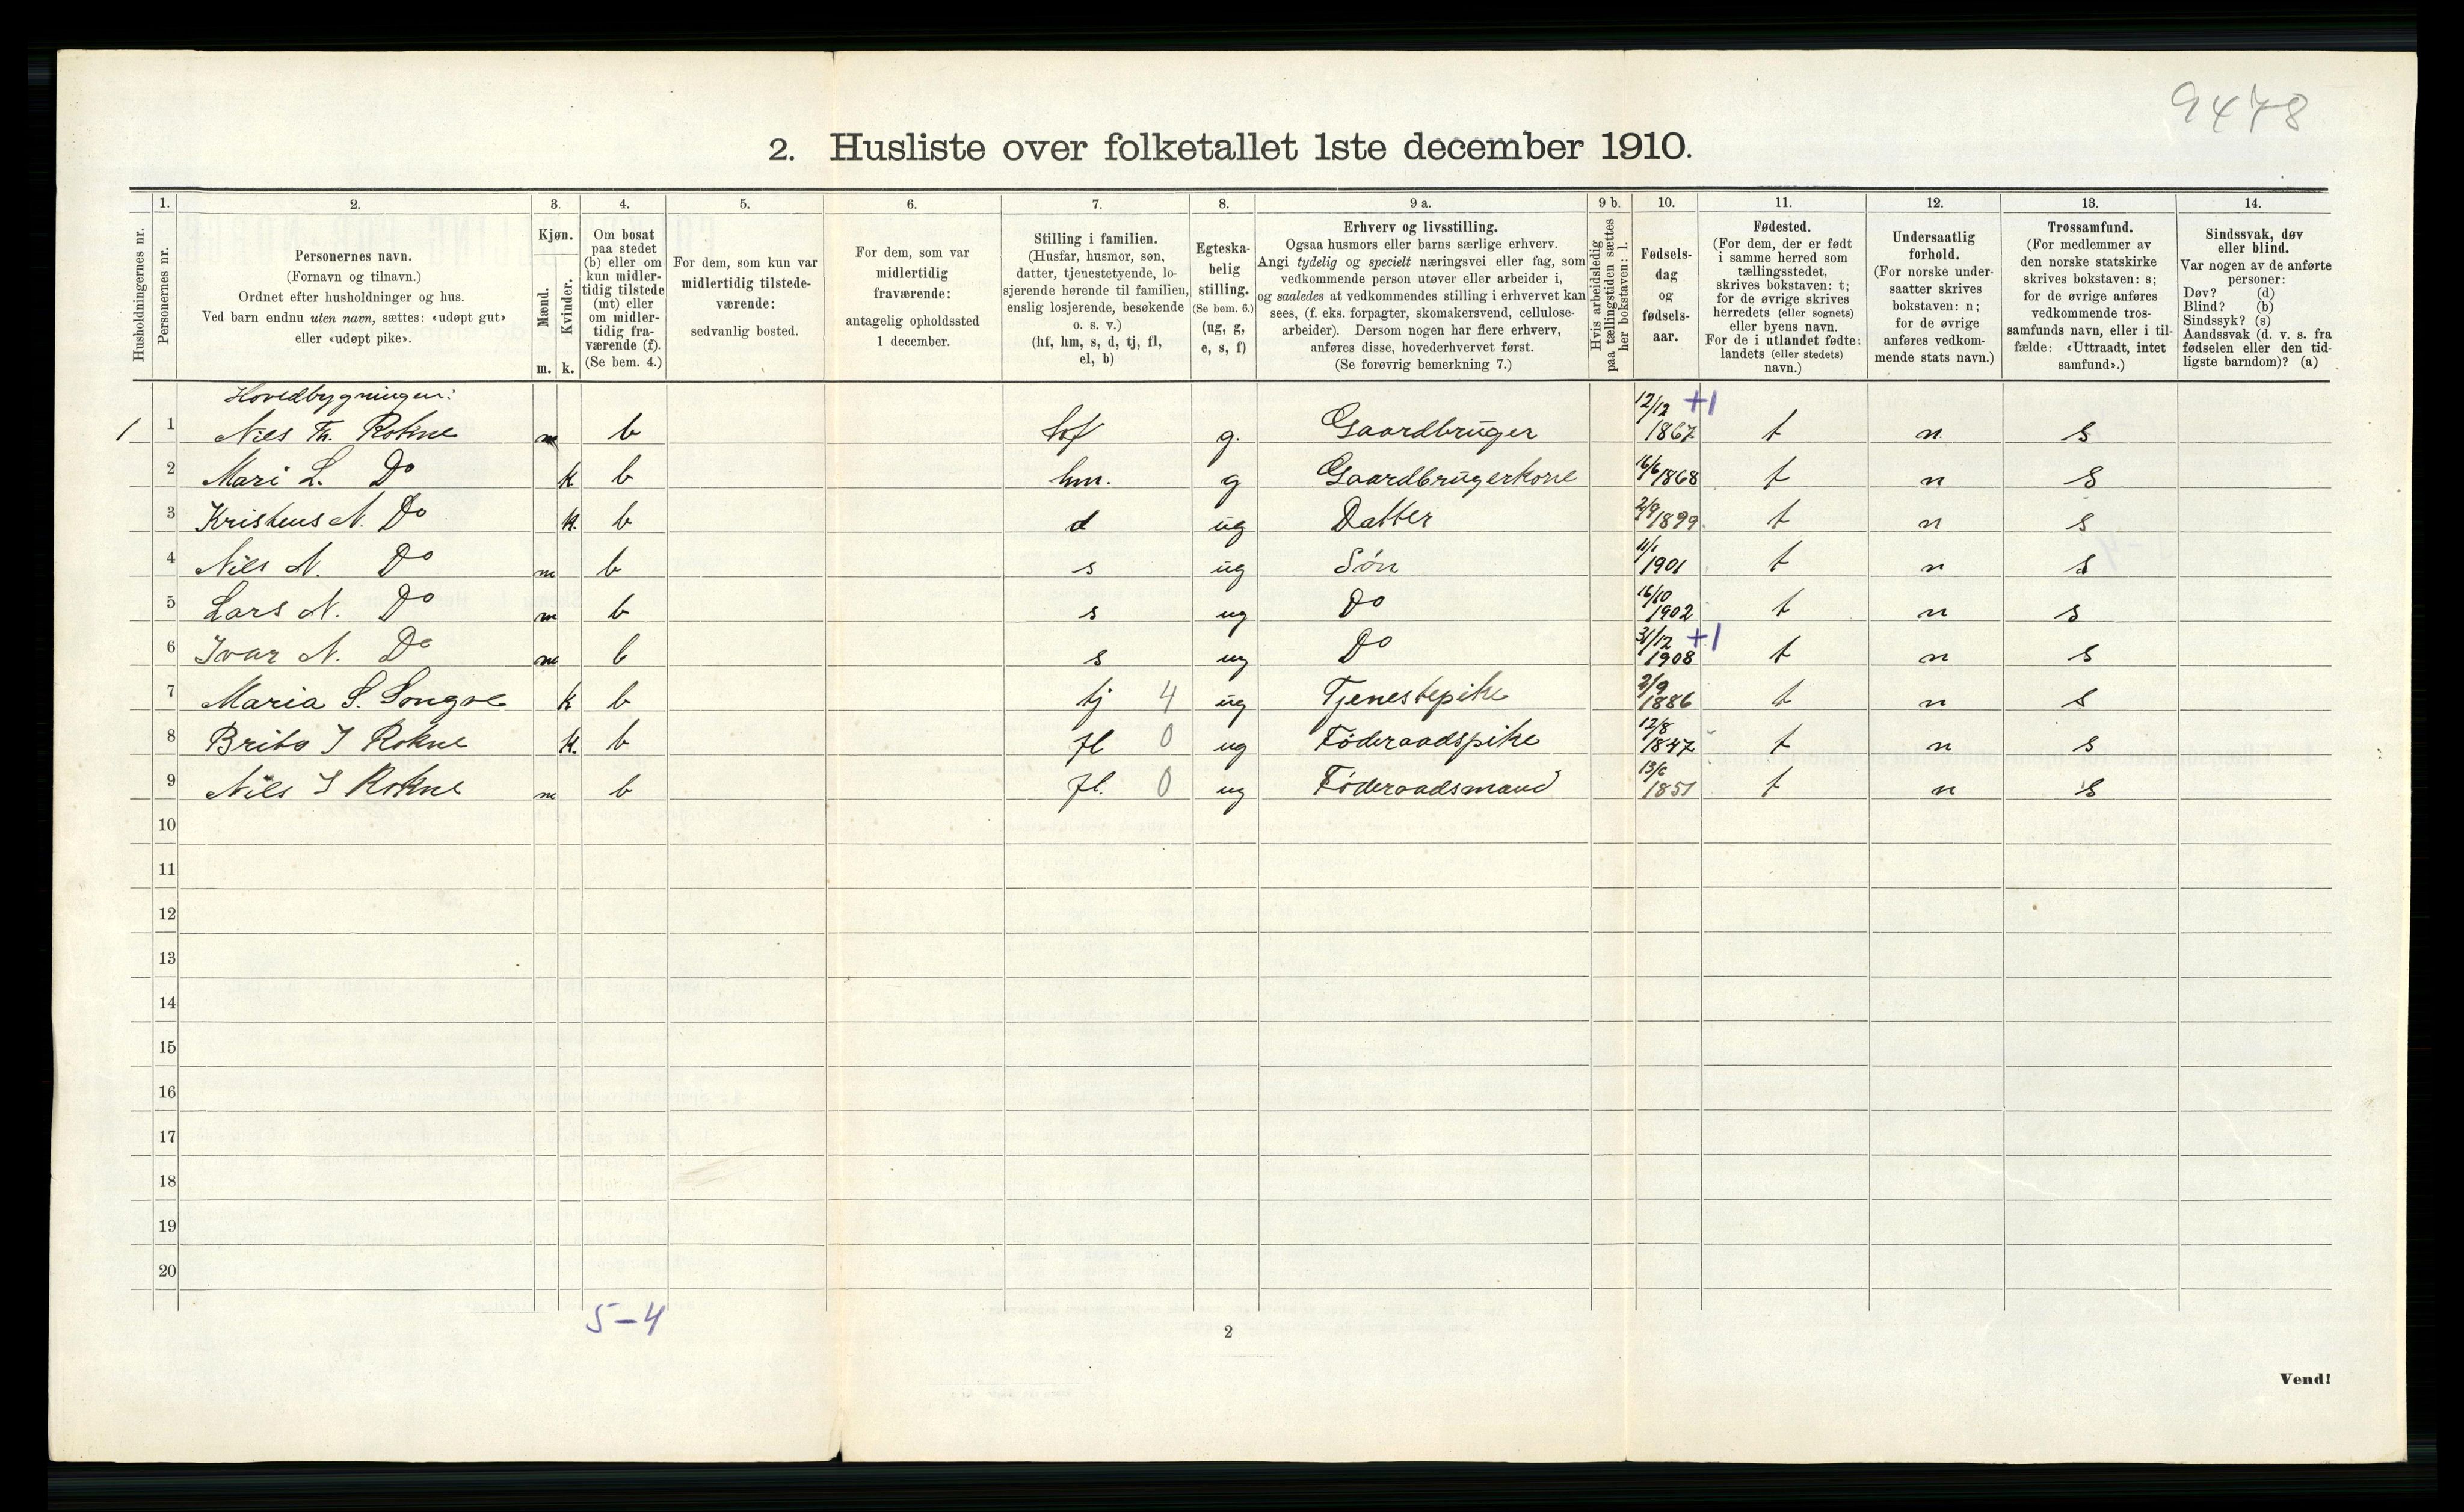 9478
2. Husliste over folketallet 1ste december 1910.
Husholdningernes nr.
1. Personernes nr.
2. Personernes navn. (Fornavn og tilnavn.) Ordnet efter husholdninger og hus. Ved barn endnu uten navn, sættes: «udøpt gut» eller «udøpt pike».
3. Kjøn. Mænd. m. Kvinder. k.
4. Om bosat paa stedet (b) eller om kun midlertidig tilstede (mt) eller om midlertidig fraværende (f). (Se bem. 4.)
5. For dem, som kun var midlertidig tilstedeværende: sedvanlig bosted.
6. For dem, som var midlertidig fraværende: antagelig opholdssted 1 december.
7. Stilling i familien. (Husfar, husmor, søn, datter, tjenestetyende, losjerende hørende til familien, enslig losjerende, besøkende o. s. v.) (hf, hm, s, d, tj, fl, el, b)
8. Egteskabelig stilling. (Se bem. 6.) (ug, g, e, s, f)
9 a. Erhverv og livsstilling. Ogsaa husmors eller barns særlige erhverv. Angi tydelig og specielt næringsvei eller fag, som vedkommende person utøver eller arbeider i, og saaledes at vedkommendes stilling i erhvervet kan sees, (f. eks. forpagter, skomakersvend, cellulosearbeider). Dersom nogen har flere erhverv, anføres disse, hovederhvervet først. (Se forøvrig bemerkning 7.)
9 b. Hvis arbeidsledig paa tællingstiden sættes her bokstaven: l.
10. Fødselsdag og fødselsaar.
11. Fødested. (For dem, der er født i samme herred som tællingsstedet, skrives bokstaven: t; for de øvrige skrives herredets (eller sognets) eller byens navn. For de i utlandet fødte: landets (eller stedets) navn.)
12. Undersaatlig forhold. (For norske undersaatter skrives bokstaven: n; for de øvrige anføres vedkommende stats navn.)
13. Trossamfund. (For medlemmer av den norske statskirke skrives bokstaven: s; for de øvrige anføres vedkommende trossamfunds navn, eller i tilfælde: «Uttraadt, intet samfund».)
14. Sindssvak, døv eller blind. Var nogen av de anførte personer: Døv? (d) Blind? (b) Sindssyk? (s) Aandssvak (d. v. s. fra fødselen eller den tidligste barndom)? (a)
Hovedbygningen:
1 1 Nils Th. Rokne m b hf g. Gaardbruger 12/12 1867 +1 t n s
2 Mari L. Do k b hm. g Gaardbrugerkone 16/6 1868 t n s
3 Kristens N. Do k. b d ug Datter 2/9 1899 t n s
4 Nils N. Do m b s ug Søn 11/1 1901 t n s
5 Lars N. Do m b s ug Do 16/10 1902 t n s
6 Ivar N. Do m b s ug Do 31/12 1908 +1 t n s
7 Maria S. Songve k b tj 4 ug Tjenestepike 2/9 1886 t n s
8 Brita I Rokne k. b fl 0 ug Føderaadspike 12/8 1847 t n s
9 Nils I Rokne m b fl. 0 ug Føderaadsmand 13/6 1851 t n s
10
11
12
13
14
15
16
17
18
19
20
5-4
2
Vend!